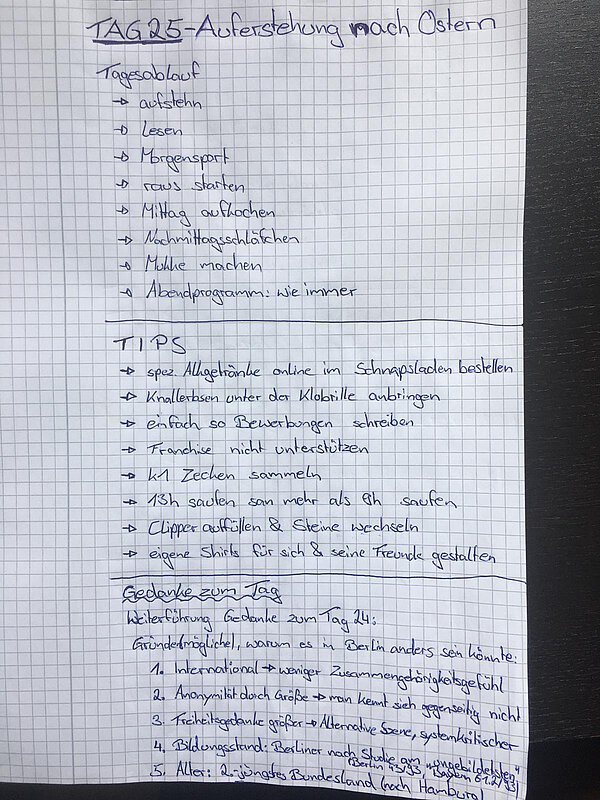 TAG 25 - Auferstehung nach Ostern
Tagesablauf
→ aufstehn
→ Lesen
→ Morgensport
→ raus starten
→ Mittag aufkochen
→ Nachmittagsschläfchen
→ Mukke machen
→ Abendprogramm: wie immer
TIPS
→ spez. Alkgetränke online im Schnapsladen bestellen
→ Knallerbsen unter der Klobrille anbringen
→ einfach so Bewerbungen schreiben
→ Franchise nicht unterstützen
→ k1 Zecken sammeln
→ 13h saufen san mehr als 8h saufen
→ Clipper auffüllen & Steine wechseln
→ eigene Shirts für sich & seine Freunde gestalten
Gedanke zum Tag
Weiterführung Gedanke zum Tag 24:
Gründe(mögliche), warum es in Berlin anders sein könnte:
1. International → weniger Zusammengehörigkeitsgefühl
2. Anonymität durch Größe → man kennt sich gegenseitig nicht
3. Freiheitsgedanke größer → Alternative Szene, systemkritischer
4. Bildungsstand: Berliner nach Studie am "ungebildetsten"
Berlin 43/93, Bayern 61.2/93)
5. Alter: 2-jüngstes Bundesland (nach Hamburg)